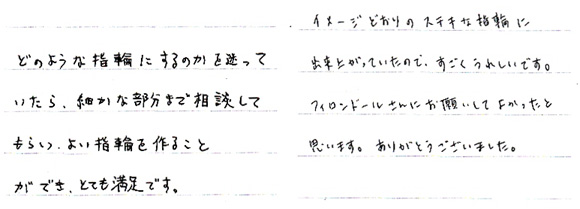 どのような指輪にするのかを迷って
いたら、細かな部分まで相談して
もらい、よい指輪を作ること
ができ、とても満足です。
イメージどおりのステキな指輪に
出来上がっていたので、すごくうれしいです。
フィロンドールさんにお願いしてよかったと
思います。ありがとうございました。